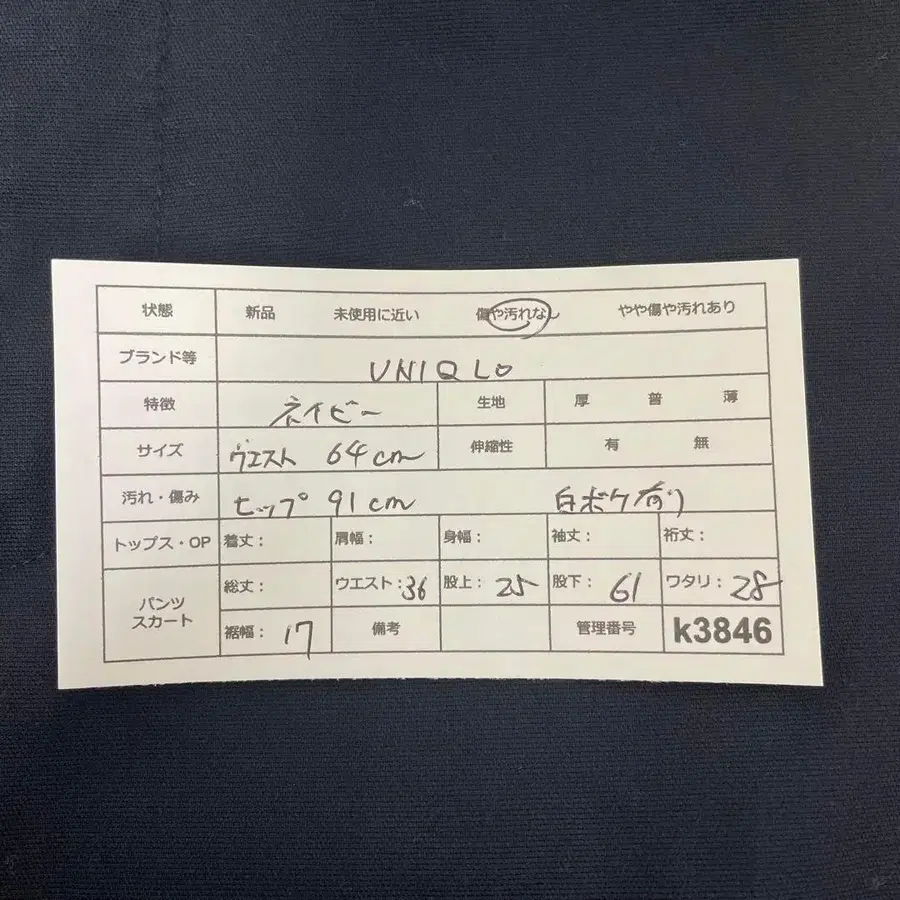 状態 新品 未使用に近い 傷や汚れなし やや傷や汚れあり
ブランド等 UNIQLO
特徴 ネイビー 生地 厚 普 薄
サイズ ウエスト 64cm 伸縮性 有 無
汚れ・傷み ヒップ 91cm 白ボケ有り
トップス・OP 着丈: 肩幅: 身幅: 袖丈: 裄丈:
パンツ スカート 総丈: ウエスト:36 股上:25 股下:61 ワタリ:28
裾幅:17 備考 管理番号 k3846